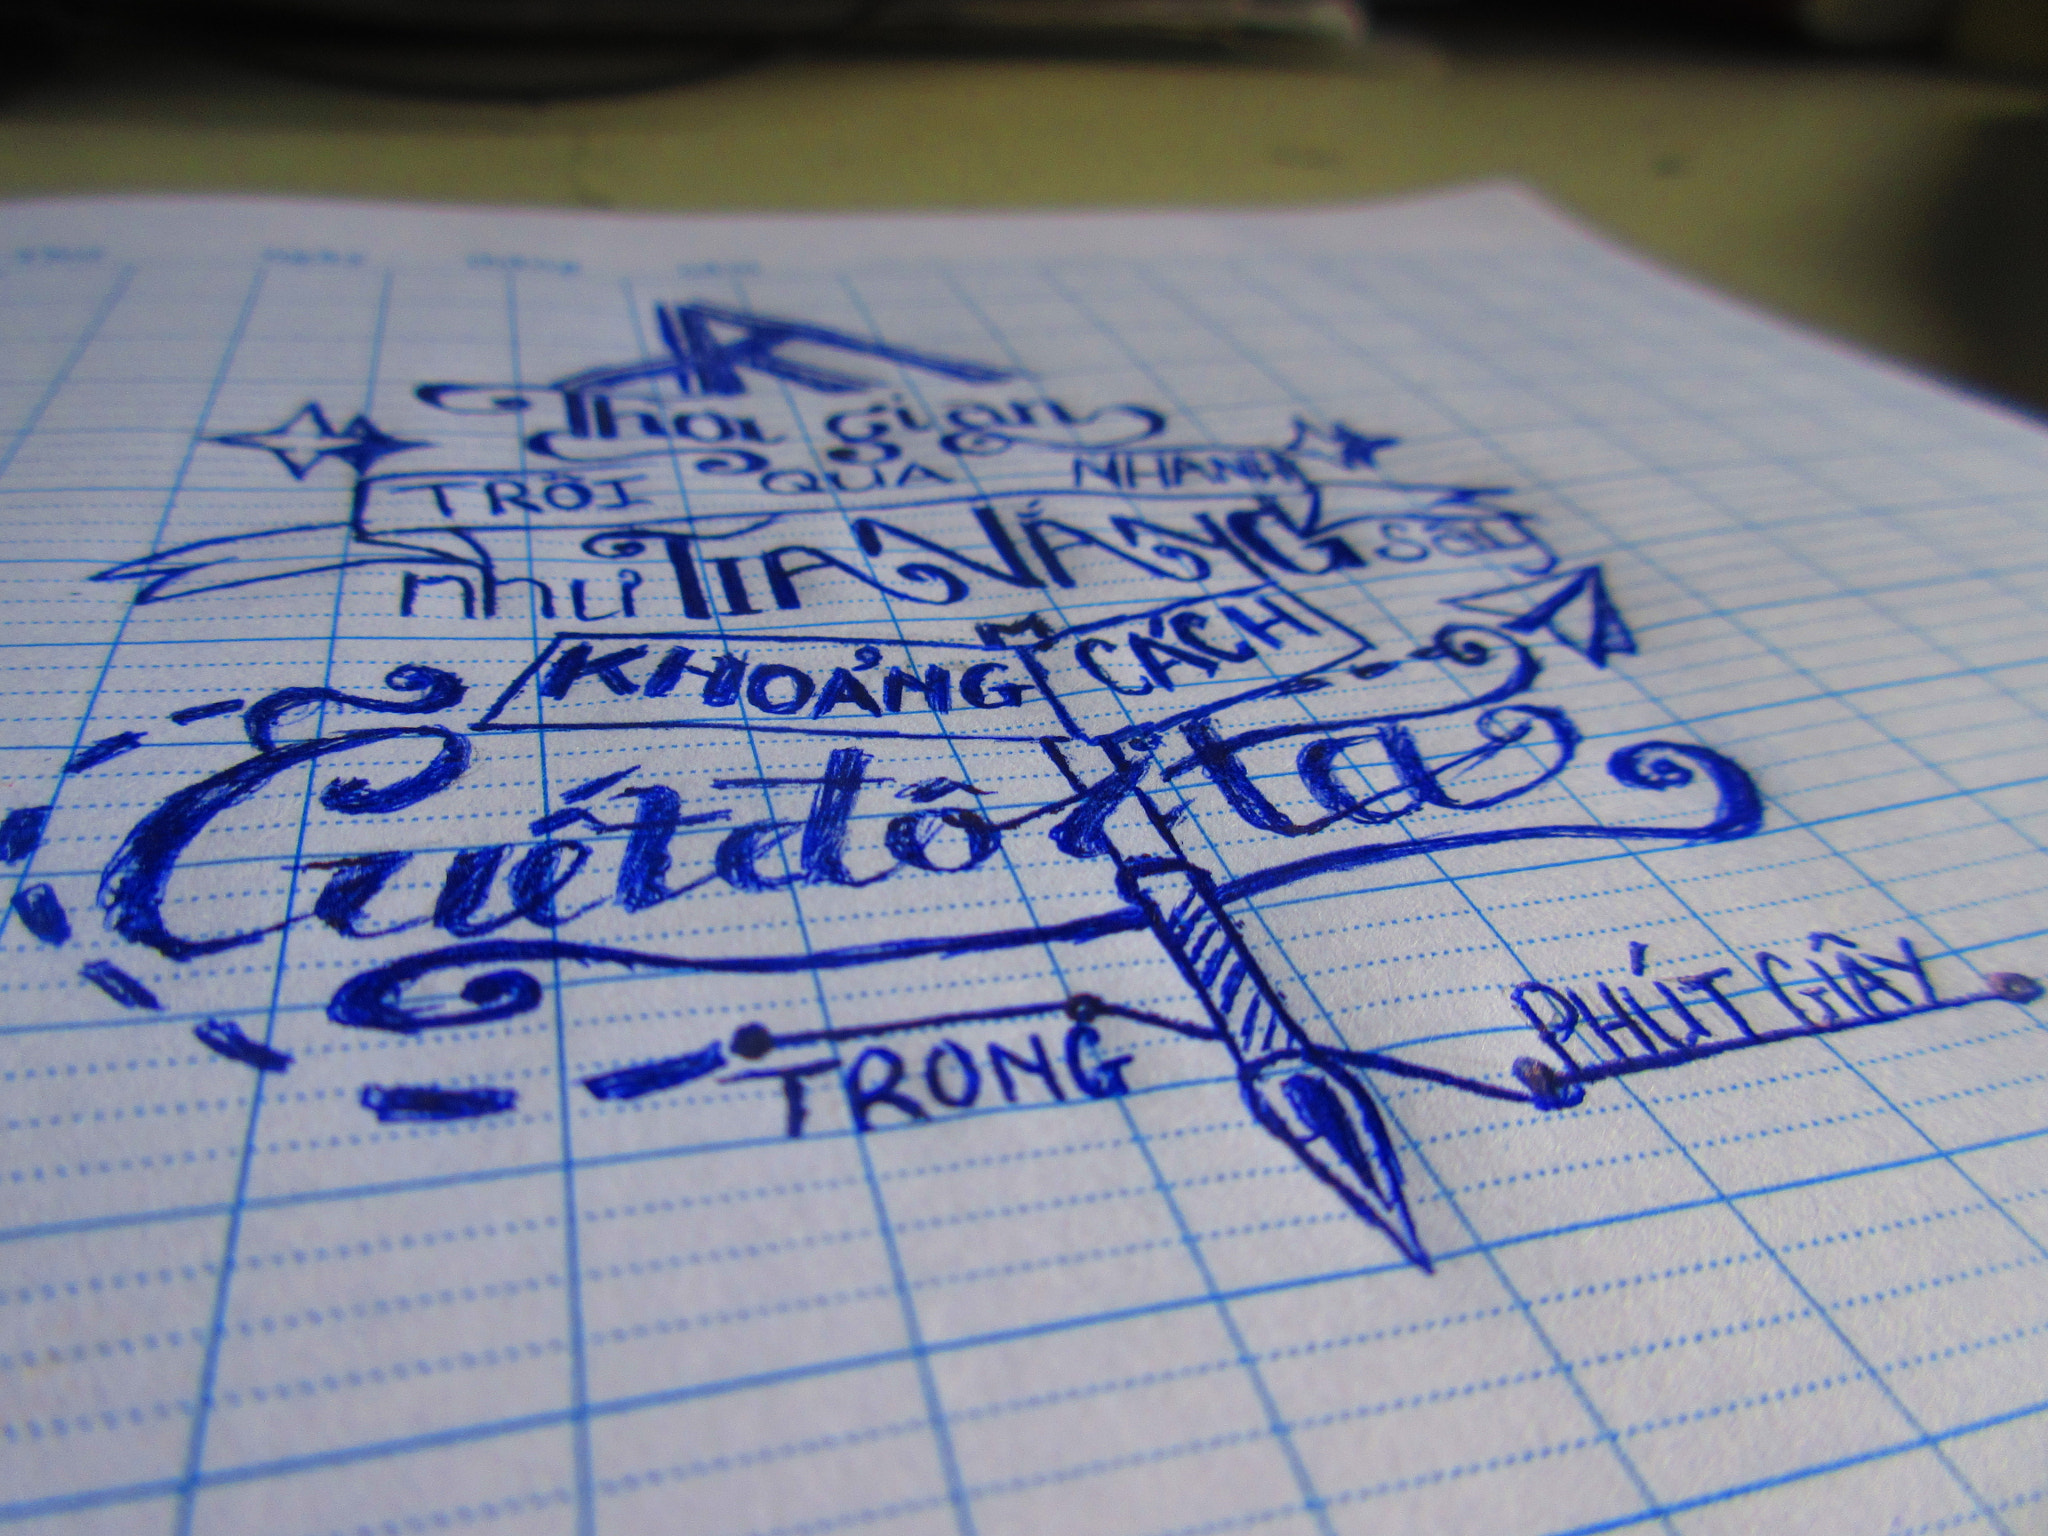 Thời gian
TRÔI QUA NHANH
như TIA NẮNG
KHOẢNG CÁCH
ta
TRONG PHÚT GIÂY